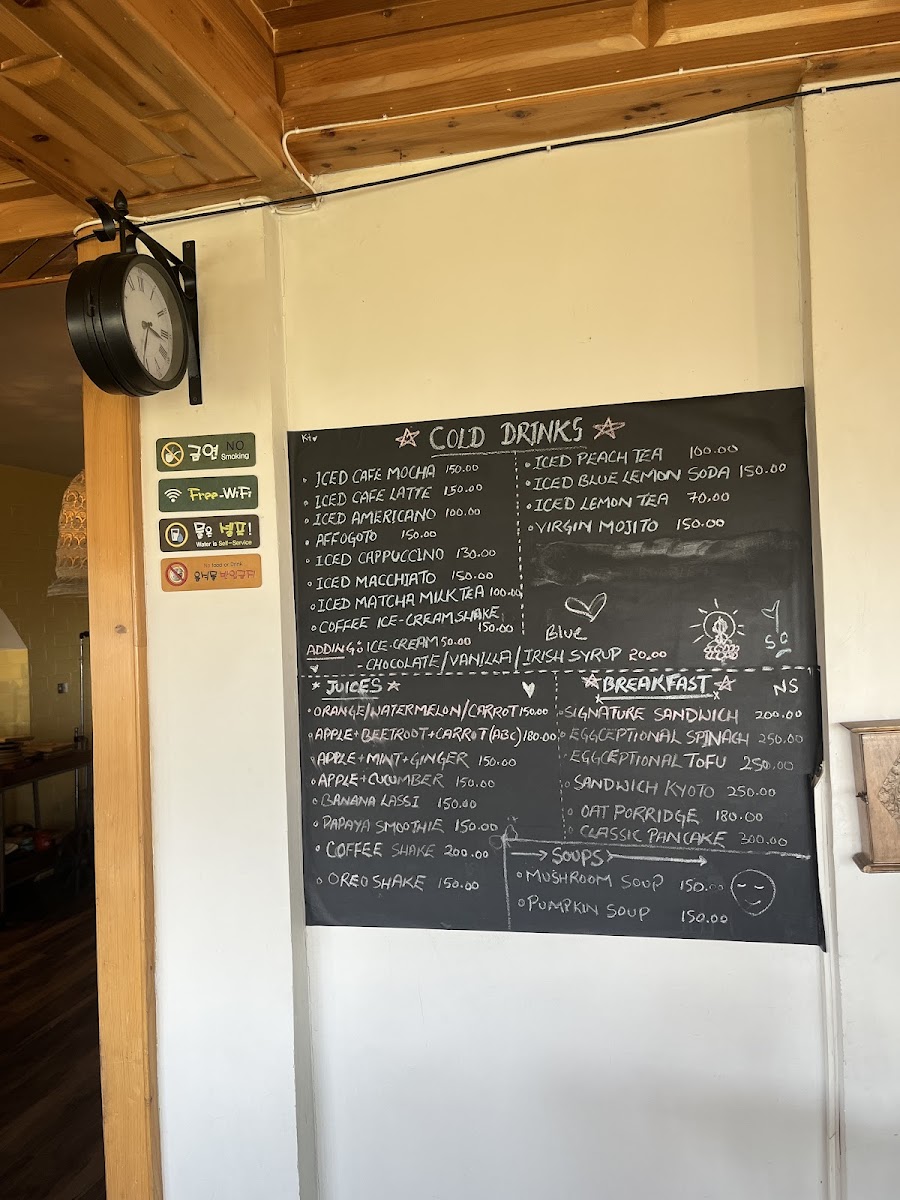 금연 NO
Smoking
Free-WiFi
물은 셀프!
Water is Self-Service
No food or Drink
COLD DRINKS
ICED CAFE MOCHA 150.00
ICED CAFE LATTE 150.00
ICED AMERICANO 100.00
AFFOGOTO 150.00
ICED CAPPUCCINO 130.00
ICED MACCHIATO 150.00
ICED MATCHA MILK TEA 100.00
COFFEE ICE-CREAM SHAKE
150.00
ICED PEACH TEA 100.00
ICED BLUE LEMON SODA 150.00
ICED LEMON TEA 70.00
VIRGIN MOJITO 150.00
Blue
ADDING: ICE-CREAM 50.00
- CHOCOLATE/VANILLA/IRISH SYRUP 20.00
JUICES
ORANGE/WATERMELON/CARROT 150.00
APPLE+BEETROOT+CARROT(ABC) 180.00
APPLE+MINT+GINGER 150.00
APPLE+CUCUMBER 150.00
BANANA LASSI 150.00
PAPAYA SMOOTHIE 150.00
COFFEE SHAKE 200.00
OREO SHAKE 150.00
BREAKFAST NS
SIGNATURE SANDWICH 200.00
EGGCEPTIONAL SPINACH 250.00
EGGCEPTIONAL TOFU 250.00
SANDWICH KYOTO 250.00
OAT PORRIDGE 180.00
CLASSIC PANCAKE 300.00
SOUPS
MUSHROOM SOUP 150.00
PUMPKIN SOUP 150.00